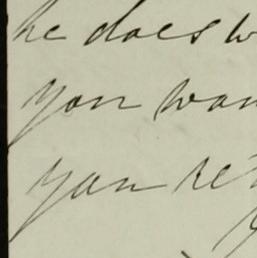 he does w
you wan
you re